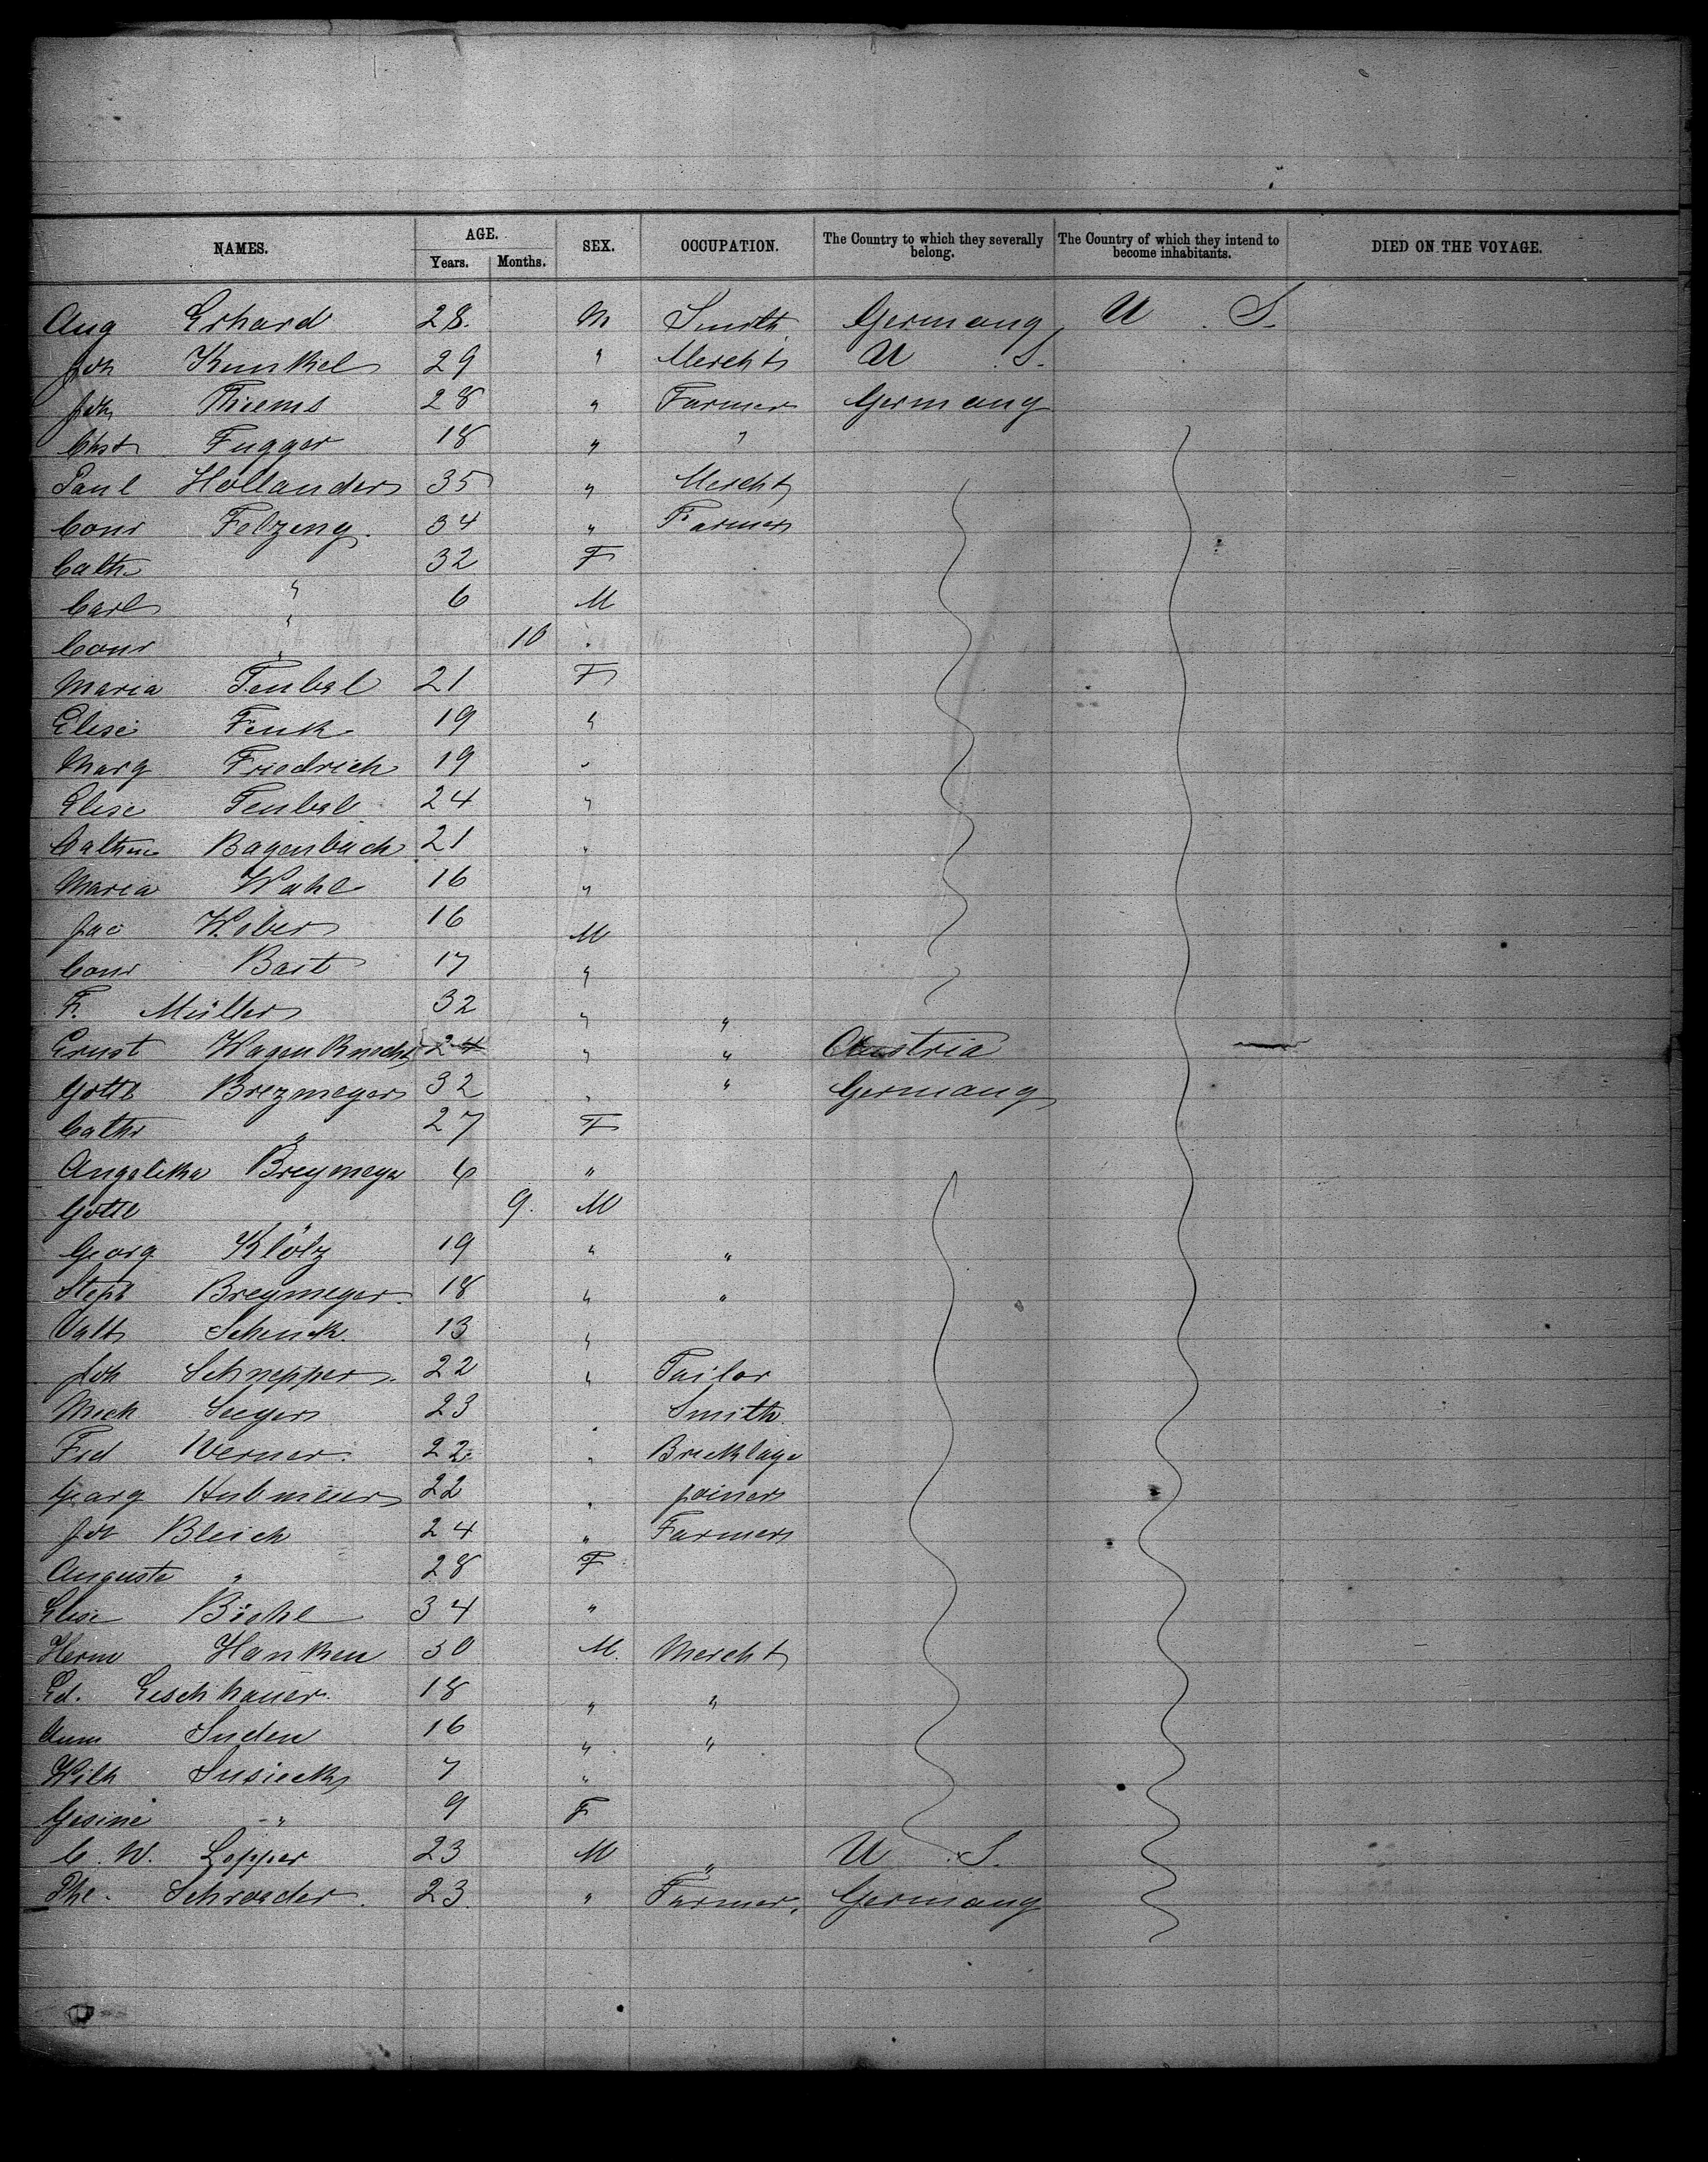 NAMES. AGE. SEX. OCCUPATION. The Country to which they severally belong. The Country of which they intend to become inhabitants. DIED ON THE VOYAGE.
Years. Months.
Aug Erhard 28. M Smith Germany U. S.
Joh Kunkel 29 " Mercht U S.
Joh Thiems 28 " Farmer Germany
Chst Fugger 18 " "
Paul Hollander 35 " Mercht
Conr Felzing. 34 " Farmer
Cath " 32 F
Carl " 6 M
Conr " 10 "
Maria Teubel 21 F
Elise Fenk 19 "
Marg Friedrich 19 "
Elise Teubel 24 "
Cathne Bagenbach 21 "
Maria Wahl 16 "
Jac Weber 16 M
Conr Bast 17 "
F. Müller 32 " "
Ernst Wagenknecht 24 " " Austria
Gottl Brezmeyer 32 " " Germany
Cathr " 27 F
Angelika Breymeyer 6 "
Gottl " 9. M
Georg Klötz 19 " "
Steph Breymeyer. 18 " "
Valt Schenck 13 "
Joh Schnepper. 22 " Tailor
Mich Seeger 23 " Smith
Frd Werner. 22 " Bricklaye
Georg Hubmeier 22 " joiner
Joh Bleich 24 " Farmer
Auguste " 28 F
Elise Biehl 34 "
Herm Hanken 30 M. Mercht
Ed. Eeschhauer. 18 " "
Suden 16 " "
Wilh Susieck 7 "
Gesine " 9 F
C. W. Lepper 23 M " U. S.
Phl. Schroeder. 23. " Farmer. Germany